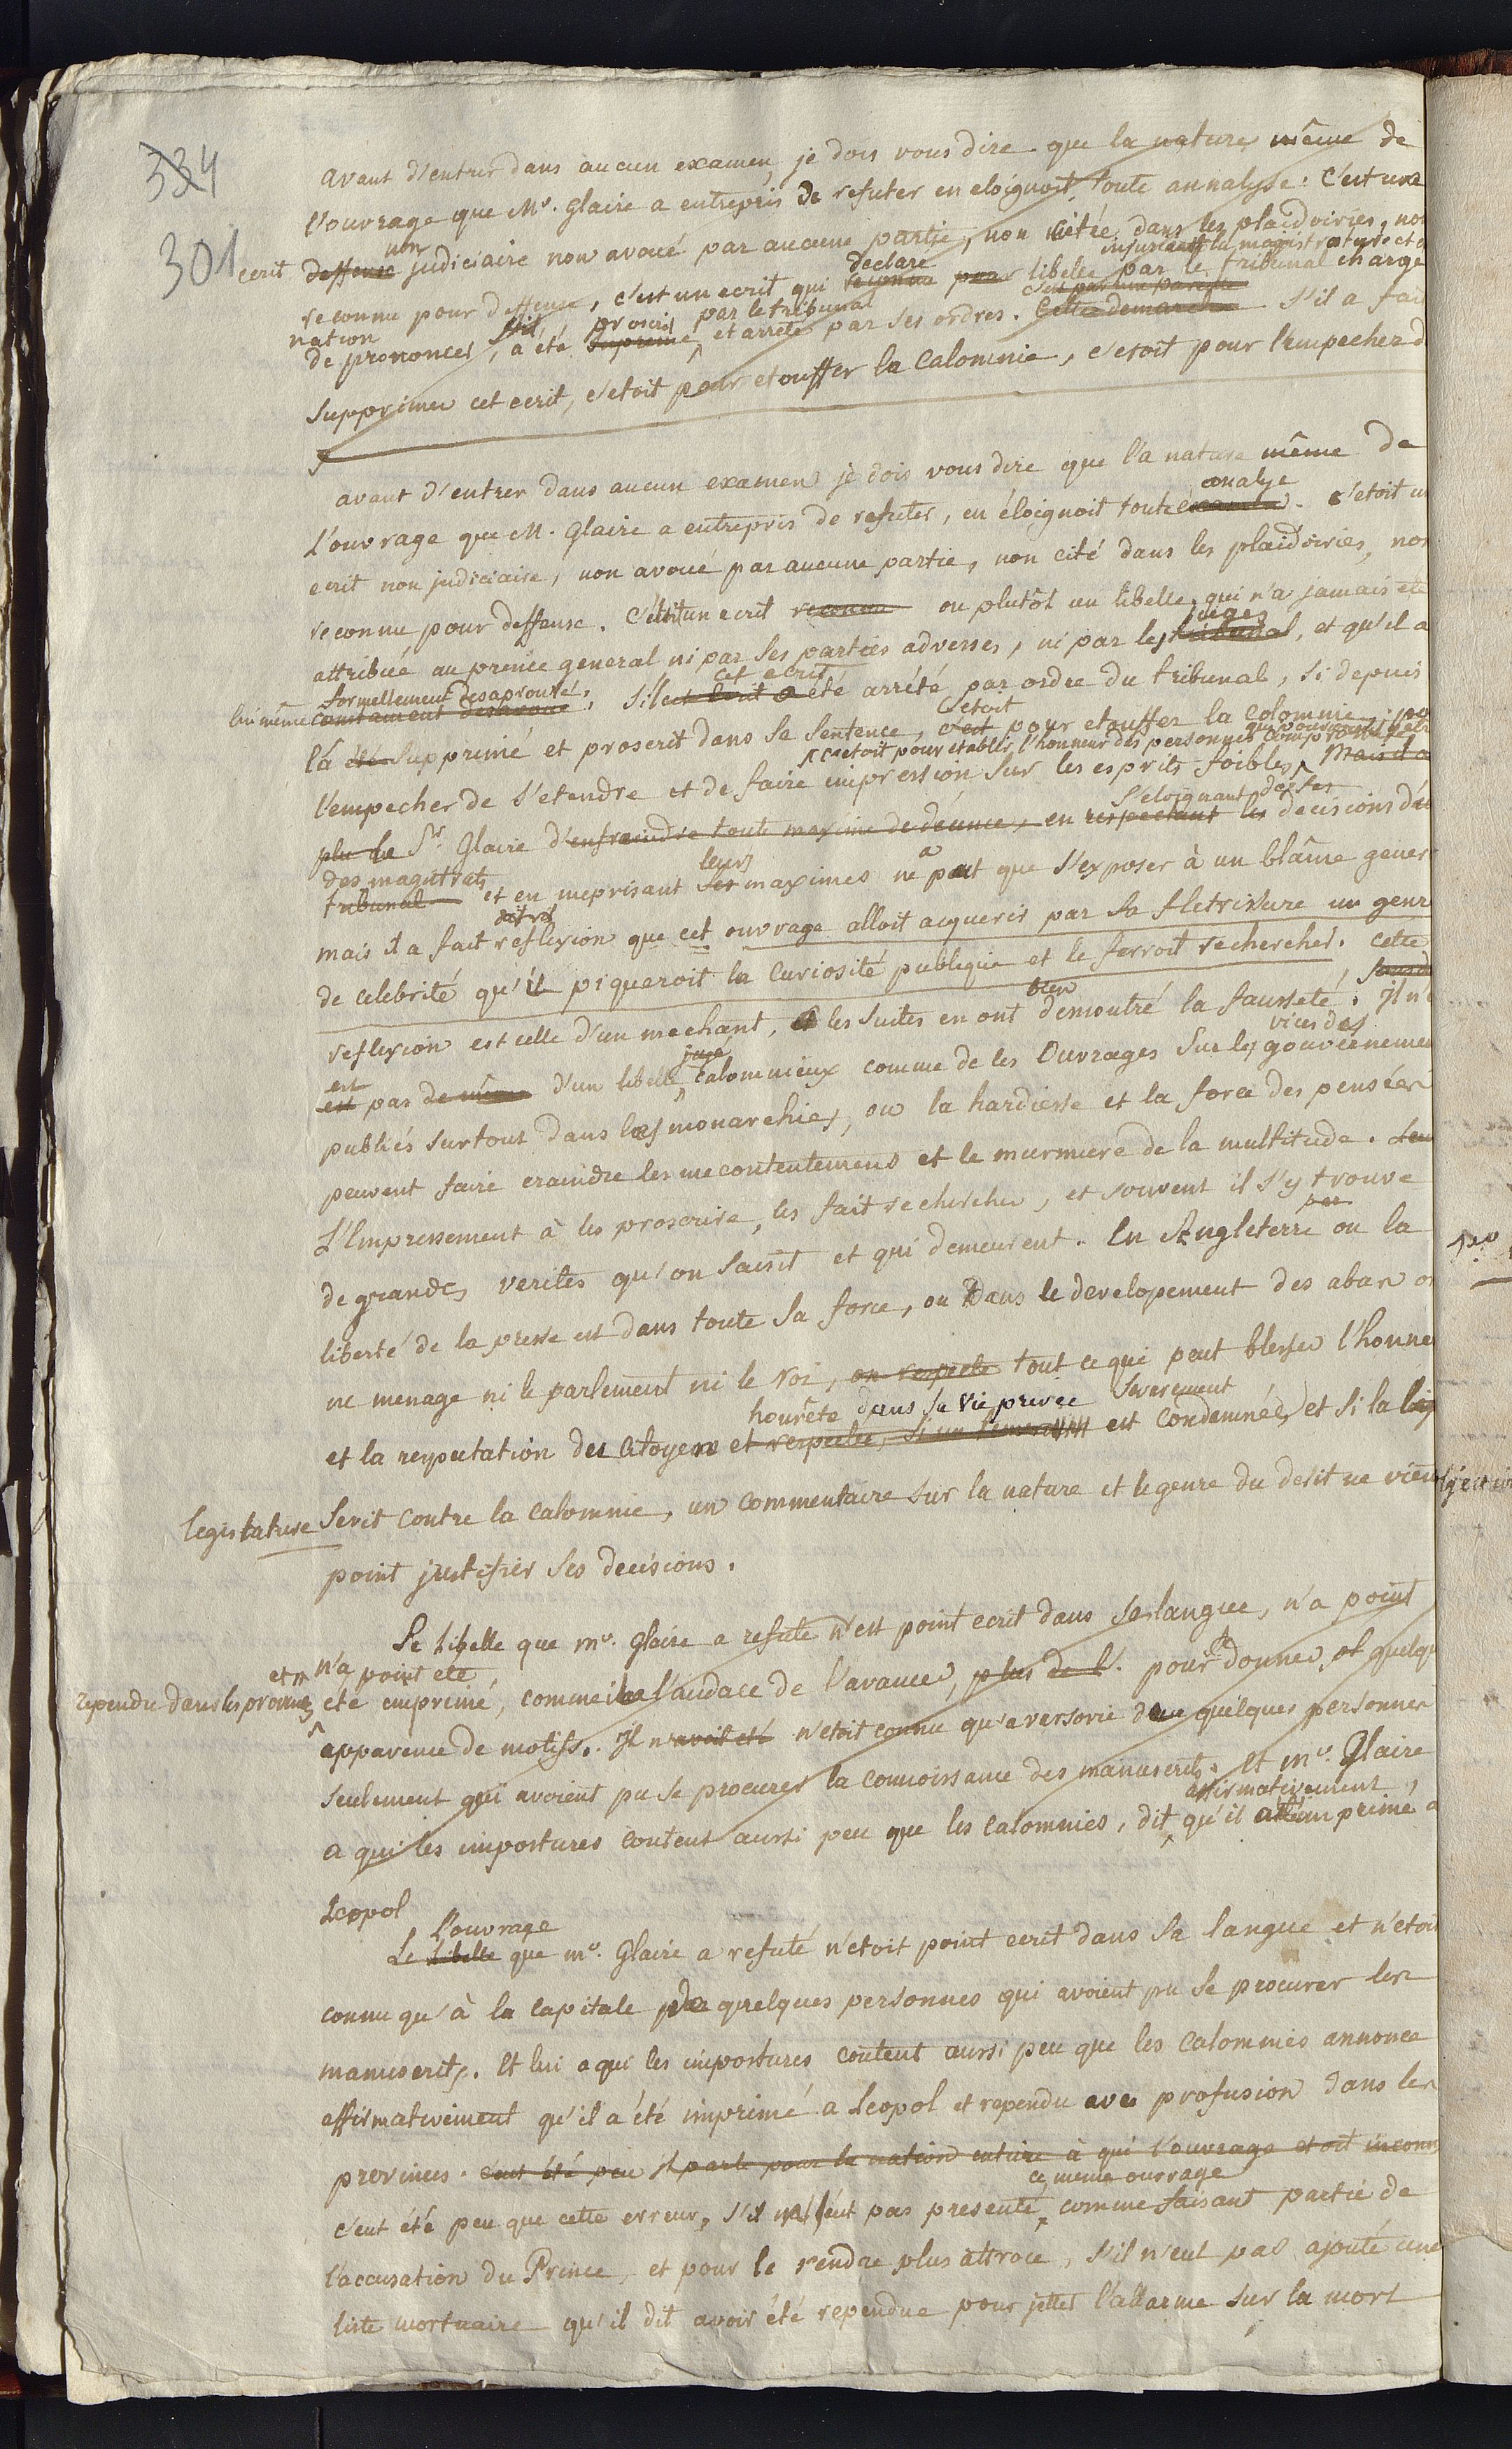 334
301
avant d'entrer dans aucun examen, je dois vous dire que la nature même de
l'ouvrage que Mr. Glaire a entrepris de refuter en eloignoit toute annalyse: C'est une
ecrit deffense non judiciaire non avoué par aucune partie, non citée dans les plaidoiries, non
injuriant la magistrature et
reconnu pour deffense, c'est un ecrit qui reconnu declare pour libelle par le tribunal chargé
nation
de prononcer, a été supprimé proscrit par le tribunal et arrêté par ses ordres. Cette demarche s'il a fait
supprimer cet ecrit, c'etoit pour etouffer la Calomnie, c'etoit pour l'empecher d
avant d'entrer dans aucun examen je dois vous dire que l'a nature même de
analyse
L'ouvrage que M. Glaire a entrepris de refuter, en éloignoit toute examen. c'etoit un
ecrit non judiciaire, non avoué par aucune partie, non cité dans les plaidoiries, non
reconnu pour deffense. C'étoit un ecrit reconnu ou plutôt un libelle, qui n'a jamais été
juges
attribué au prince general ni par ses parties adverses, ni par les tribunal, et qu'il a
formellement desaprouvé, cet ecrit
lui même constament desavoué; Si cet ecrit a été arrêté par ordre du tribunal, si depuis
c'etoit
là été supprimé et proscrit dans sa sentence, c'est pour etouffer la colomnie, po
c'etoit pour etablir l'honneur des personnes compromises
l'empecher de s'etendre et de faire impression sur les esprits foibles, Mais il a
s'eloignant de ses
plu le Sr. Glaire d'enfraindre toute maxime de décence, en respectant les decisions
des magistrats leurs a
tribunal et en meprisant ses maximes ne peut que s'exposer à un blâme gener
mais il a fait reflexion que cet ouvrage alloit acquerir par sa fletrissure un genr
de celebrité qu'il piqueroit la Curiosité publique et le ferroit rechercher. Cette
bien
reflexion est celle d'un mechant, et les suites en ont demontré la fausseté; Il n'
est jugé vices des
est pas de même d'un libelle calomnieux comme de les Ouvrages sur les gouvernemen
publiés surtout dans les monarchies, ou la hardiesse et la force des pensées
peuvent faire craindre les mecontentemens et le murmure de la multitude. Leu
L'Empressement à les proscrire, les fait rechercher, et souvent il s'y trouve
de grandes verités qu'on saisit et qui demeurent. En Angleterre ou la
liberté de la presse est dans toute sa force, ou dans le developement des abus on
ne menage ni le parlement ni le Roi, on respecte tout ce qui peut blesser l'honne
honnête dans sa vie privée severement
et la reputation des Citoyens et respectée, est condemnée, et si la loi
legislature sevit contre la calomnie, un commentaire sur la nature et le genre du delit ne vien
point justifier ses decisions.
Le libelle que mr. Glaire a refuté n'est point ecrit dans sa langue, n'a point
et n n'a point été
rependu dans les provinces été imprimé, comme il a l'audace de l'avancer, plus de l'. pour donner, et quelqu
apparence de motifs. Il n'avoit été n'etoit connu qu'a versovie de quelques personnes
seulement qui avoient pu se procurer la connoissance des manuscrits. Et mr. Glaire
affirmativement,
a qui les impostures coutent aussi peu que les calomnies, dit, qu'il a été imprimé a
Leopol
L'ouvrage
Le libelle que mr. Glaire a refuté n'etoit point ecrit dans sa langue et n'etoit
connu qu'à la capitale de quelques personnes qui avoient pu se procurer les
manuscrits. Et lui a qui les impostures coutent aussi peu que les calomnies annonce
affirmativement qu'il a été imprimé a Leopol et rependu avec profusion dans les
provinces. c'eut été peu il parle pour la nation entiere à qui l'ouvrage etoit inconn
ce même ouvrage
c'eut été peu que cette erreur, s'il ne l'eut pas presenté, comme faisant partie de
l'accusation du Prince, et pour le rendre plus attroce, s'il n'eut pas ajouté une
liste mortuaire qu'il dit avoir été rependue pour jetter l'allarme sur la mort